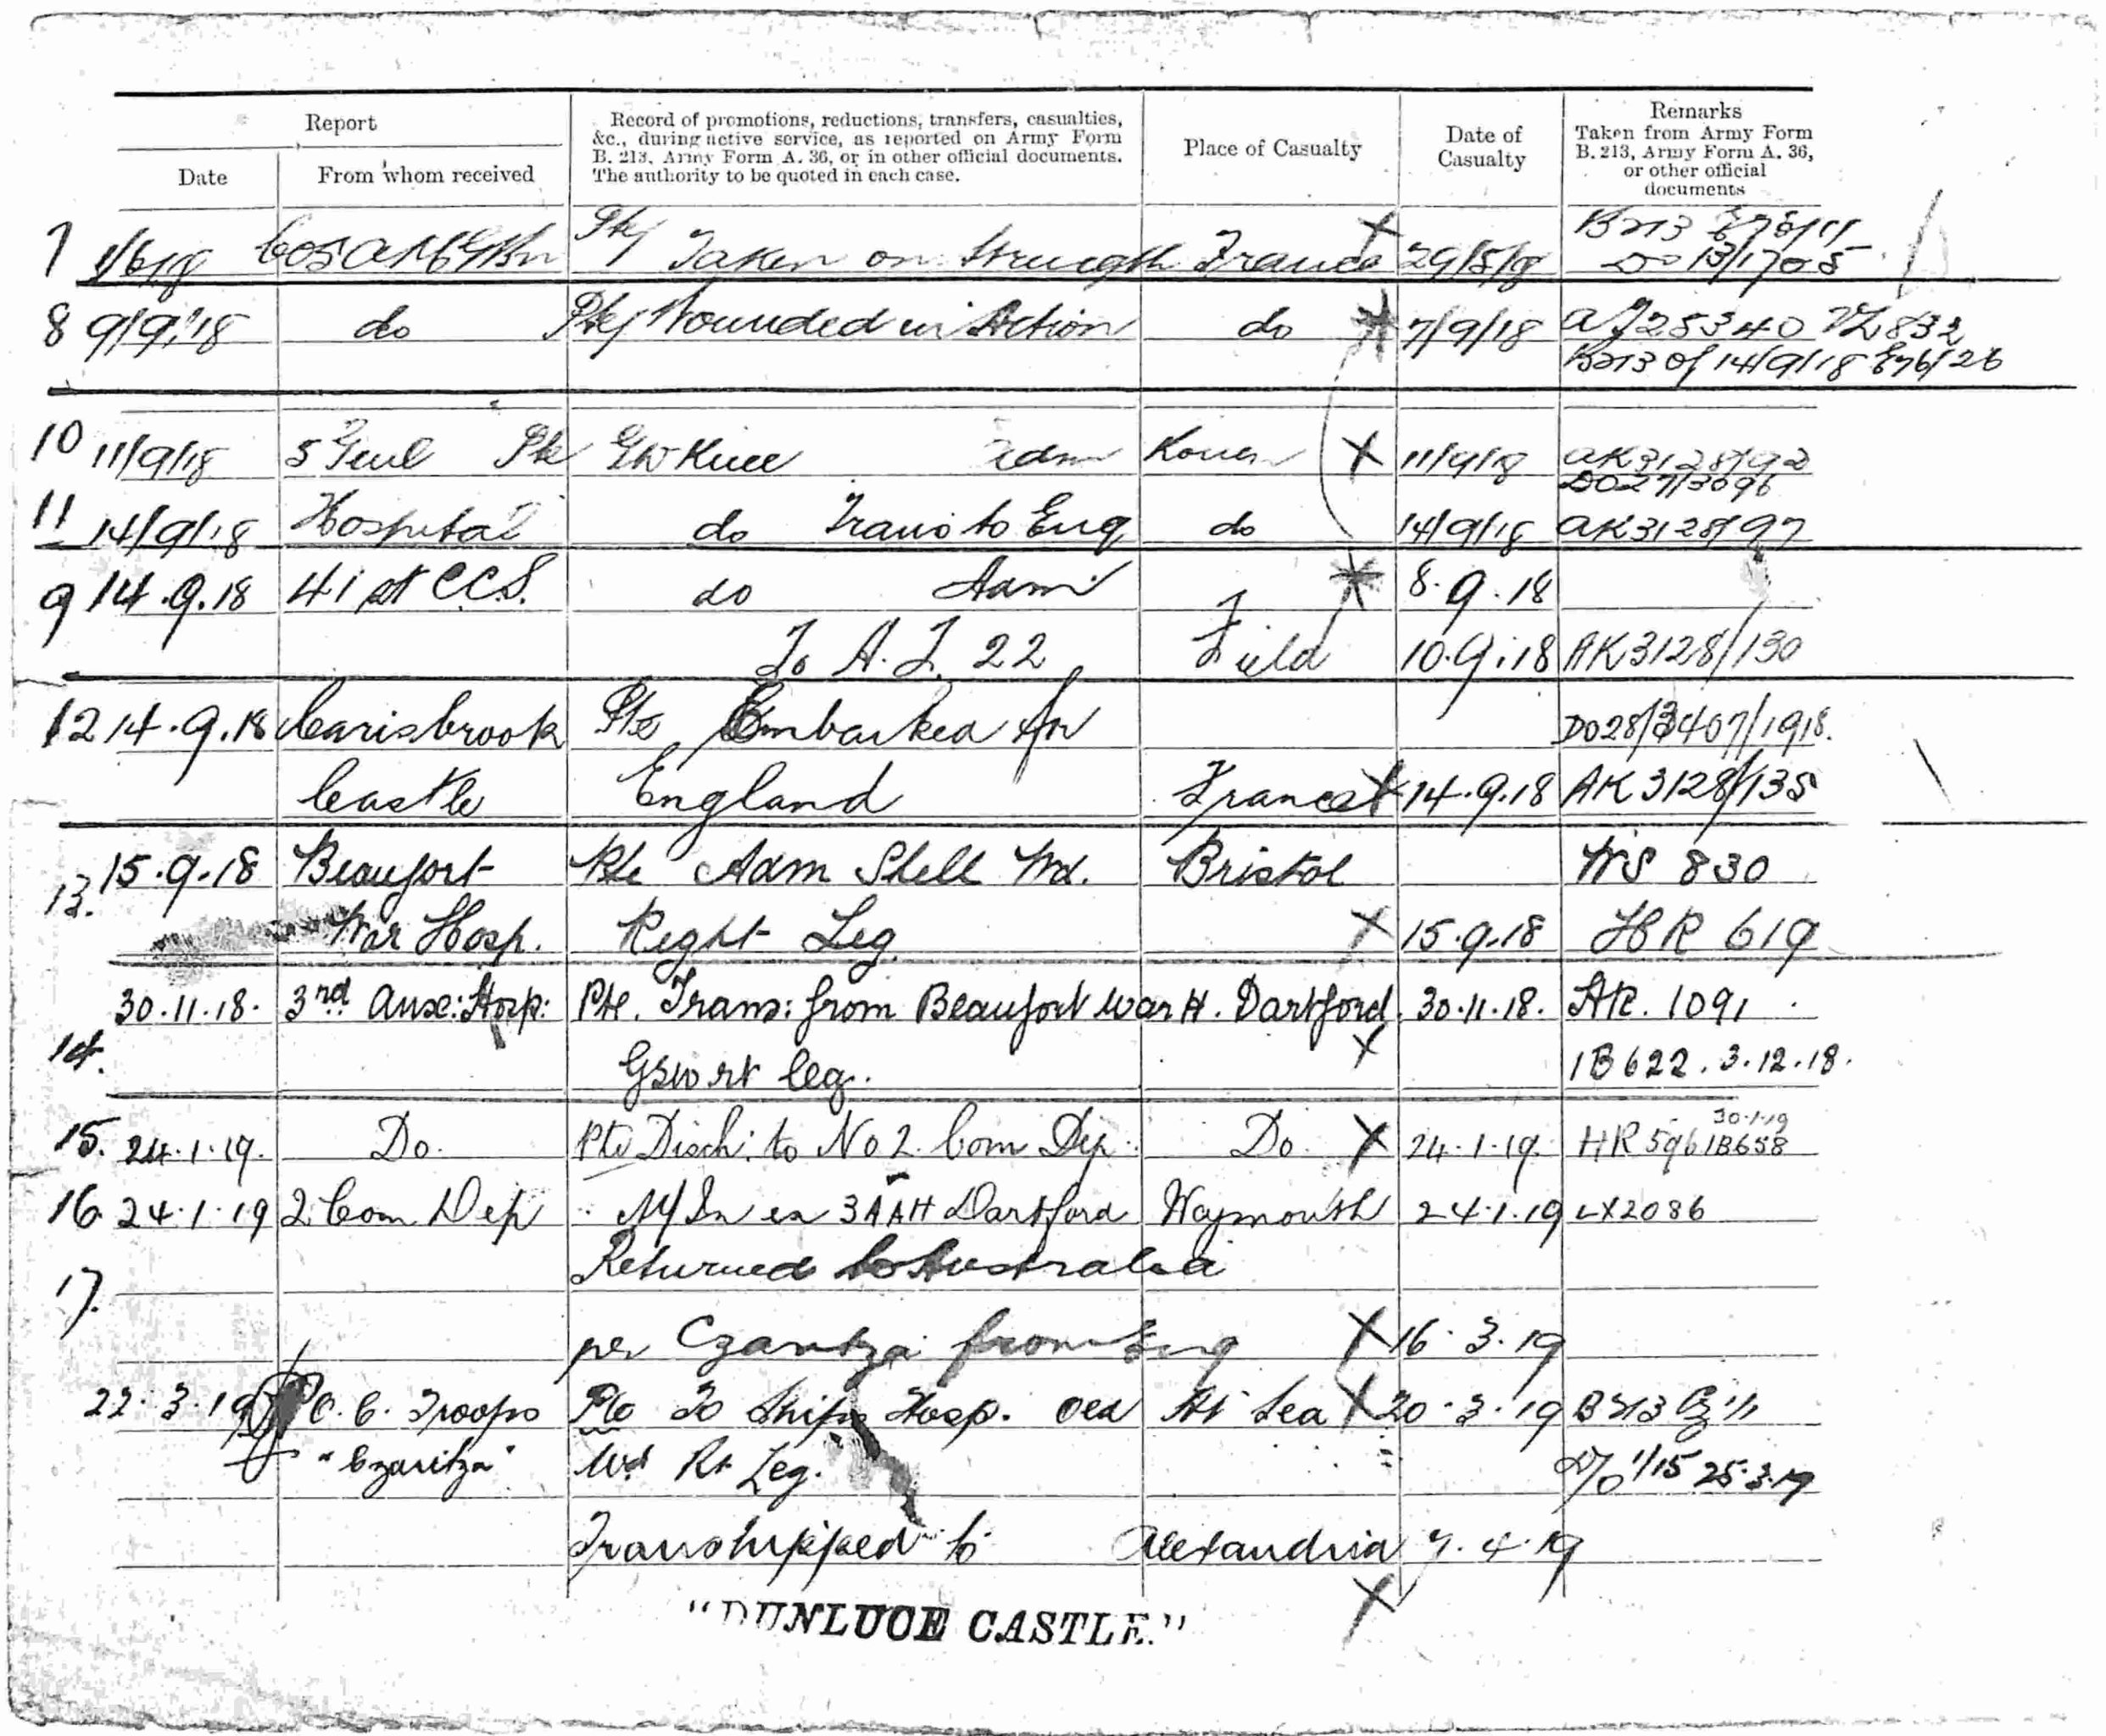 Report
Date
From whom received
Record of promotions, reductions, transfers, casualties,
&c., during active service, as reported on Army Form
B. 213, Army Form A. 36, or in other official documents.
The authority to be quoted in each case.
Place of Casualty
Date of
Casualty
Remarks
Taken from Army Form
B. 213, Army Form A. 36,
or other official
documents
7 1/6/18 Pte Taken on Strength France X 29/5/18 B213
DO 13/1705
8 9/9/18 do Pte Wounded in Action do 7/9/18 832
B213 of 14/9/18 E76/26
10 11/9/18 5 Genl Pte GSW Knee adm Rouen X 11/9/18 AK3128/92
DO27/3096
11 14/9/18 Hospital do Trans to Eng do 14/9/18 AK3128/97
9 14.9.18 41st CCS. do Adm 8.9.18
To A.T. 22 Field 10.9.18 AK3128/130
12 14.9.18 Carisbrook Pte Embarked for DO28/3407/1918.
Castle England France X 14.9.18 AK3128/135
13. 15.9.18 Beaufort Pte Adm Shell Wd. Bristol WS 830
War Hosp. Right Leg. X 15.9.18 HR 619
30.11.18. 3rd Aux: Hosp: Pte. Trans: from Beaufort War H. Dartford. 30.11.18. 1091
14. GSW rt leg. X 1B622. 3.12.18.
30.1.19
15. 24.1.19. Do. Pte Disch: to No 2. Com Dep: Do. X 24.1.19. HR 596 1B658
16 24.1.19 2 Com Dep M/In ex 3AAH Dartford Weymouth 24.1.19 LX2086
17. Returned to Australia
per Czaritza from Eng X 16.3.19
22.3.19 O.C. Troops Pte To Ships Hosp. Old At Sea X 20.3.19 B213
"Czaritza" Wd Rt Leg. D/O 1/15 25.3.19
Transhipped to Alexandria 7.4.19
X
"DUNLUCE CASTLE."